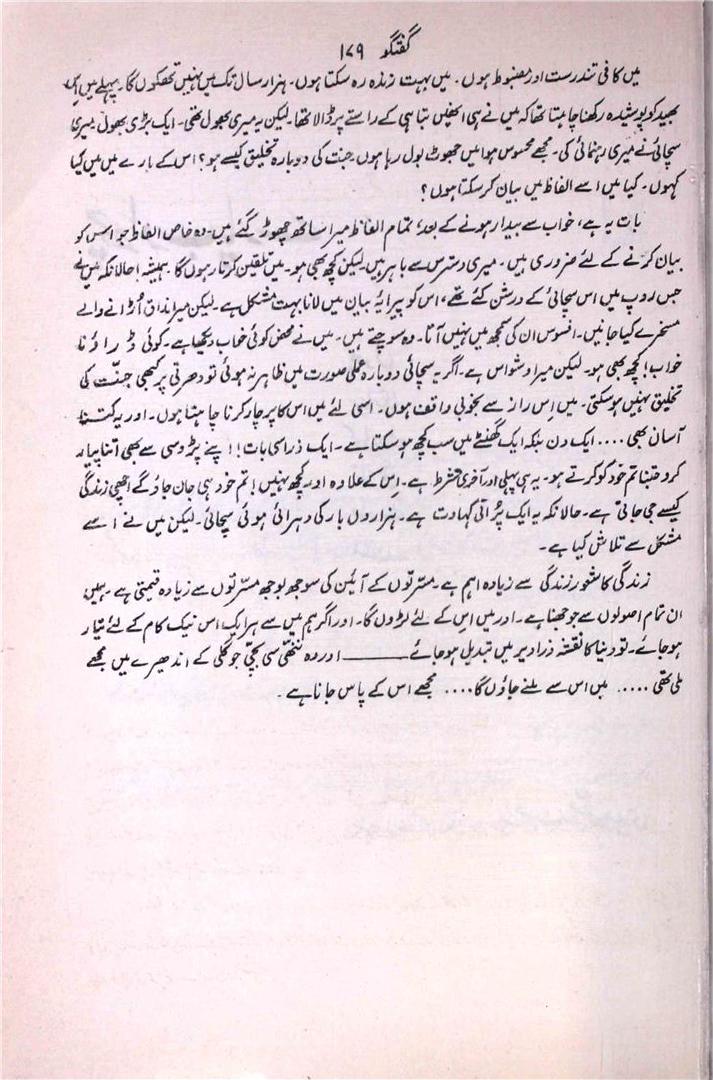 گفتگو ۱۷۹
میں کافی تندرست اور مضبوط ہوں۔ میں بہت زندہ رہ سکتا ہوں۔ ہزار سال تک میں نہیں تھکوں گا۔ پہلے میں اس
بھید کو پوشیدہ رکھنا چاہتا تھا کہ میں نے ہی انھیں تباہی کے راستے پر ڈالا تھا۔ لیکن یہ میری بھول تھی۔ ایک بڑی بھول میری
سچائی نے میری رہنمائی کی۔ مجھے محسوس ہوا میں جھوٹ بول رہا ہوں۔ جنت کی دوبارہ تخلیق کیسے ہو؟ اس کے بارے میں میں کیا
کہوں۔ کیا میں اسے الفاظ میں بیان کر سکتا ہوں؟
بات یہ ہے، خواب سے بیدار ہونے کے بعد، تمام الفاظ میرا ساتھ چھوڑ گئے ہیں۔ وہ خاص الفاظ جو اسس کو
بیان کرنے کے لئے ضروری ہیں۔ میری دسترس سے باہر ہیں۔ لیکن کچھ بھی ہو۔ میں تلقین کرتا رہوں گا۔ ہمیشہ! حالانکہ میں نے
جس روپ میں اس سچائی کے درشن کئے تھے، اس کو پیرایۂ بیان میں لانا بہت مشکل ہے۔ لیکن میرا مذاق اُڑانے والے
مسخرے کیا جانیں۔ افسوس ان کی سمجھ میں نہیں آتا۔ وہ سوچتے ہیں۔ میں نے محض کوئی خواب دیکھا ہے۔ کوئی ڈراؤنا
خواب! کچھ بھی ہو۔ لیکن میرا وشواس ہے۔ اگر یہ سچائی دوبارہ عملی صورت میں ظاہر نہ ہوئی تو دھرتی پر کبھی جنّت کی
تخلیق نہیں ہو سکتی۔ میں اِس راز سے بخوبی واقف ہوں۔ اسی لئے میں اس کا پرچار کرنا چاہتا ہوں۔ اور یہ کتنا
آسان بھی .... ایک دن بلکہ ایک گھنٹے میں سب کچھ ہو سکتا ہے۔ ایک ذرا سی بات!! اپنے پڑوسی سے بھی اتنا پیار
کرو جتنا تم خود کو کرتے ہو۔ یہ ہی پہلی اور آخری شرط ہے۔ اِس کے علاوہ اور کچھ نہیں! تم خود ہی جان جاؤ گے اچھی زندگی
کیسے جی جاتی ہے۔ حالانکہ یہ ایک پُرانی کہاوت ہے۔ ہزاروں بار کی دہرائی ہوئی سچائی۔ لیکن میں نے اسے
مشکل سے تلاش کیا ہے۔
زندگی کا شعور زندگی سے زیادہ اہم ہے۔ مسرّتوں کے آئین کی سوجھ بوجھ مسرّتوں سے زیادہ قیمتی ہے۔ ہمیں
ان تمام اصولوں سے جوجھنا ہے۔ اور میں اس کے لئے لڑوں گا۔ اور اگر ہم میں سے ہر ایک اس نیک کام کے لئے تیار
ہو جائے۔ تو دنیا کا نقشہ ذرا دیر میں تبدیل ہو جائے ــــــــــ اور وہ ننھی سی بچّی جو گلی کے اندھیرے میں مجھے
ملی تھی ..... میں اس سے ملنے جاؤں گا .... مجھے اس کے پاس جانا ہے۔